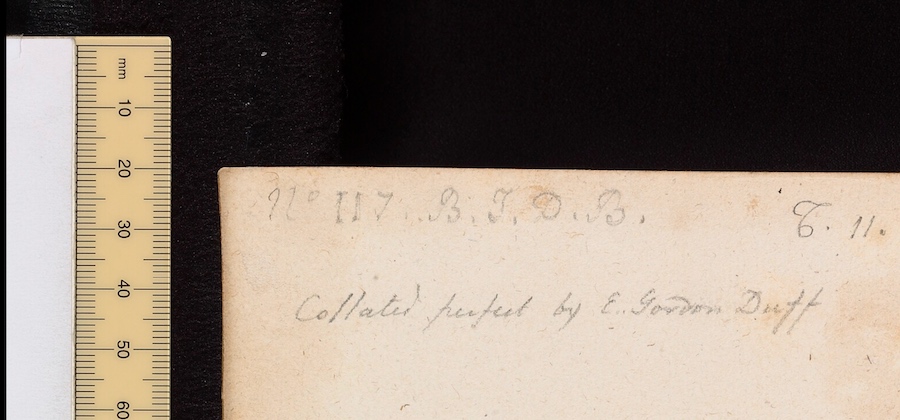 mm
10
20
30
40
50
60
No 117. B. J. D. B.
T. 11.
Collated perfect by E. Gordon Duff